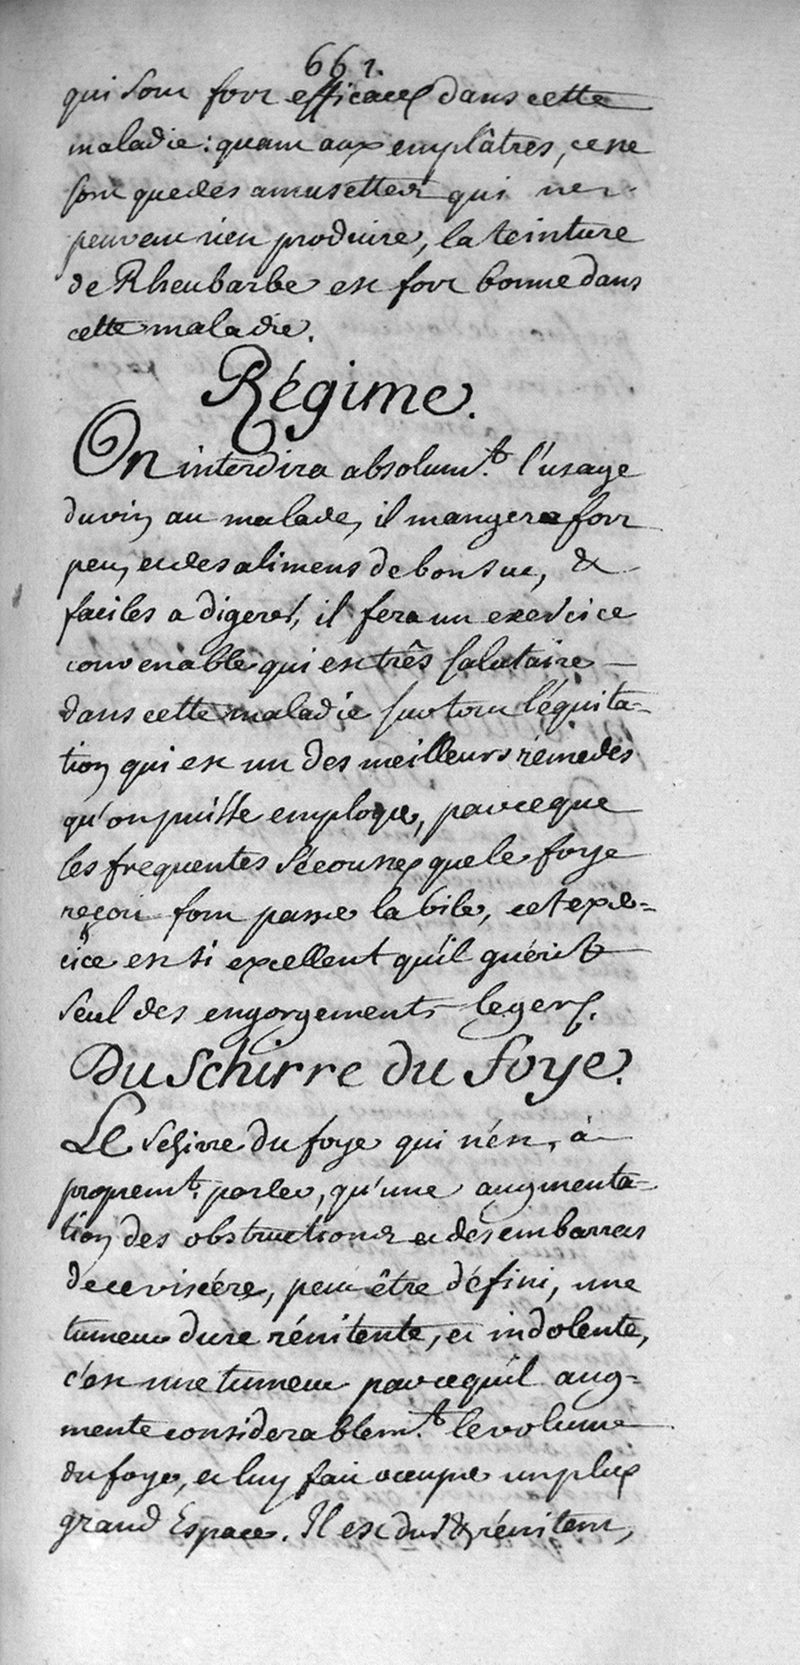 661.
qui sont fort efficaces dans cette
maladie: quant aux emplâtres, ce ne
sont que des amusettes qui ne
peuvent rien produire, la teinture
de Rheubarbe est fort bonne dans
cette maladie.
Régime.
On interdira absolum.t l'usage
du vin au malade, il mangera fort
peu, et des alimens de bon suc, &
faciles a digerer, il fera un exercice
convenable qui est très salutaire
dans cette maladie surtout l'équita=
tion qui est un des meilleurs rémedes
qu'on puisse employer, parceque
les frequentes sécousses que le foye
reçoit font passer la bile, cet exer=
cice est si excellent qu'il guérit
seul des engorgements legers.
Du Schirre du foye.
Le schirre du foye qui n'est, à
propremt. parler, qu'une augmenta=
tion des obstructions et des embarras
de ce viscére, peut être défini, une
tumeur dure rénitente, et indolente,
c'est une tumeur parcequ'il aug=
mente considerablem.t le volume
du foye, et luy fait occuper un plus
grand Espace. Il est dur & rénitent,